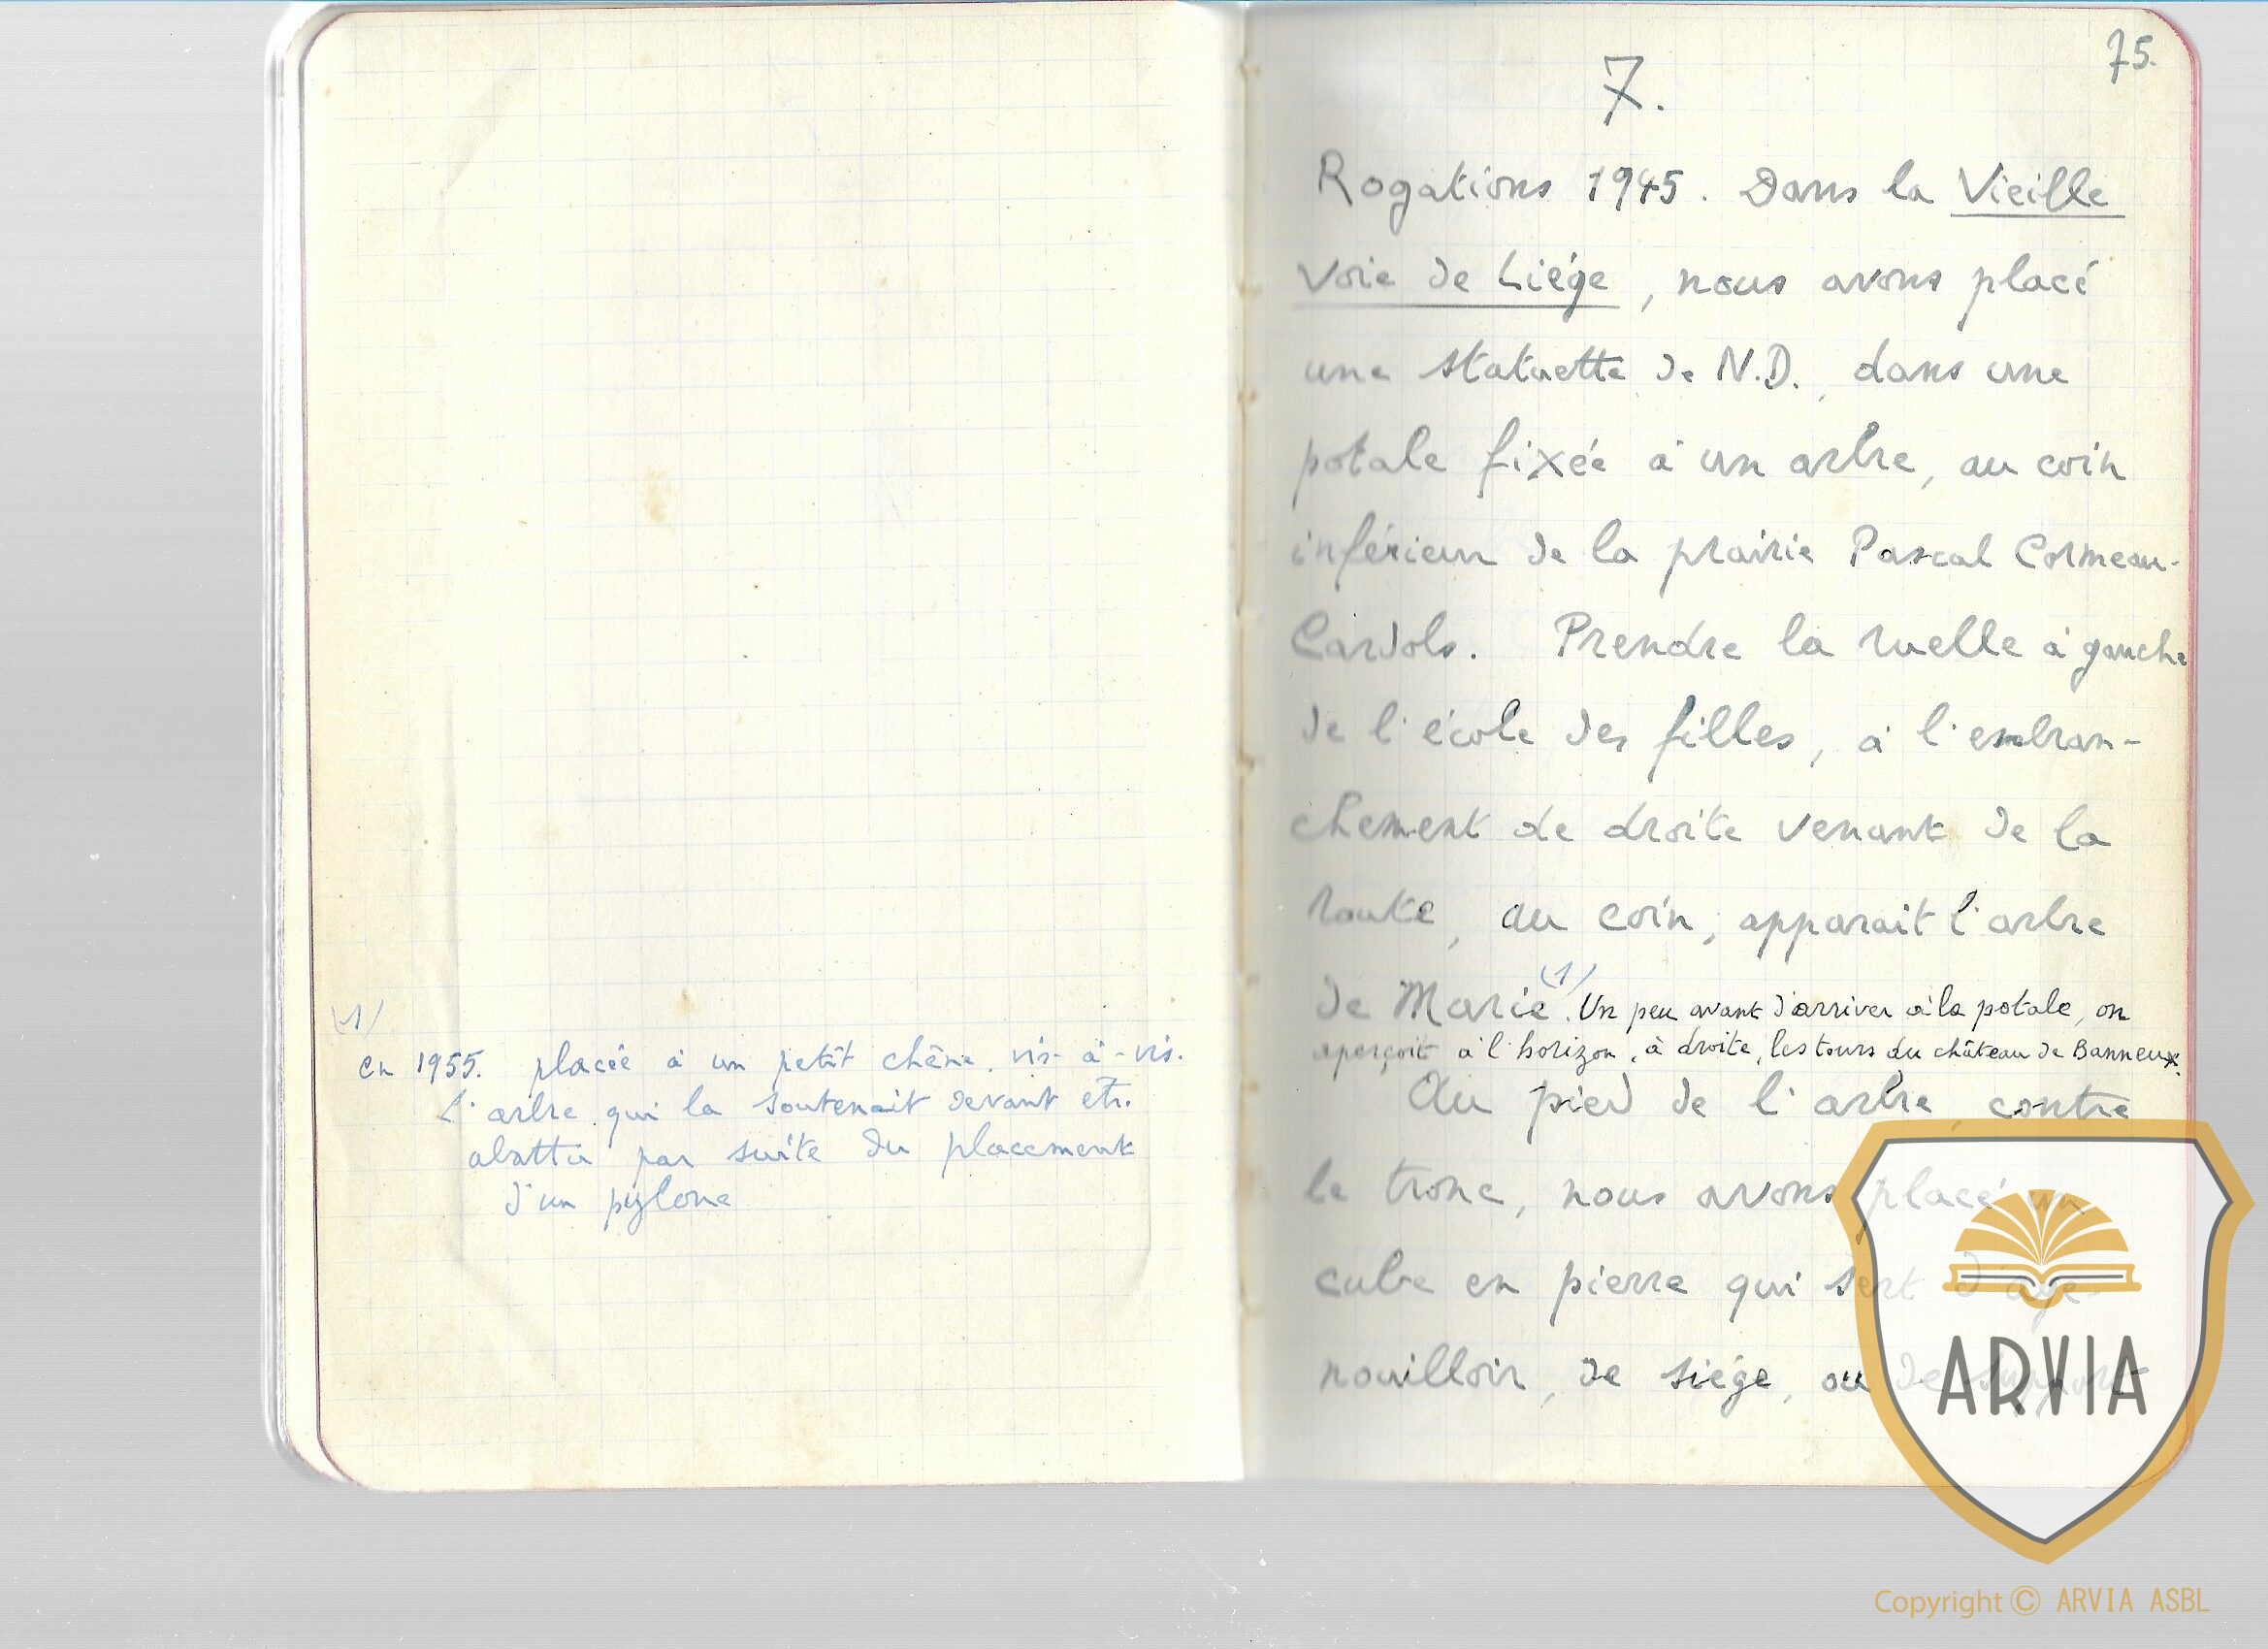 (1)
en 1955. placée à un petit chêne, vis-à-vis.
L'arbre qui la soutenait devant êtr.
abattu par suite du placement
d'un pylone
75.
7.
Rogations 1945. Dans la Vieille
Voie de Liége, nous avons placé
une statuette de N.D., dans une
potale fixée à un arbre, au coin
inférieur de la prairie Pascal Cormeau-
Cardols. Prendre la ruelle à gauche
de l'école des filles, à l'embran-
chement de droite venant de la
route, au coin, apparait l'arbre
de Marie (1). Un peu avant d'arriver à la potale, on
aperçoit à l'horizon, à droite, les tours du château de Banneux.
Au pied de l'arbre, contre
le tronc, nous avons placé un
cube en pierre qui sert d'age-
nouilloir, de siége, ou de support
ARVIA
Copyright © ARVIA ASBL